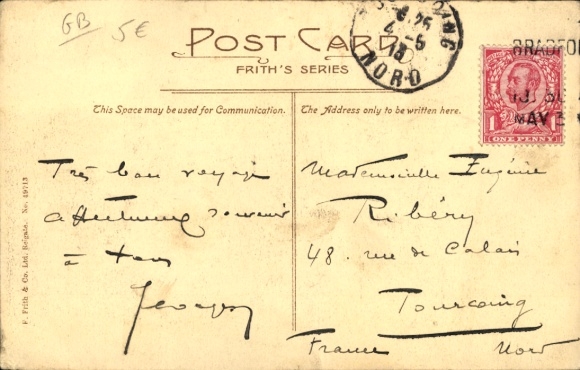 GB 5€
POST CARD
FRITH'S SERIES
6.25
4-5
13
NORD
BRADFO
MAY 3
1 ONE PENNY 1
This Space may be used for Communication.
The Address only to be written here.
Très bon voyage
affectueux souvenir
à tous
Georges
Mademoiselle Eugénie
Ribéry
48. rue de Calais
Tourcoing
France Nord
F. Frith & Co. Ltd., Reigate. No. 49713